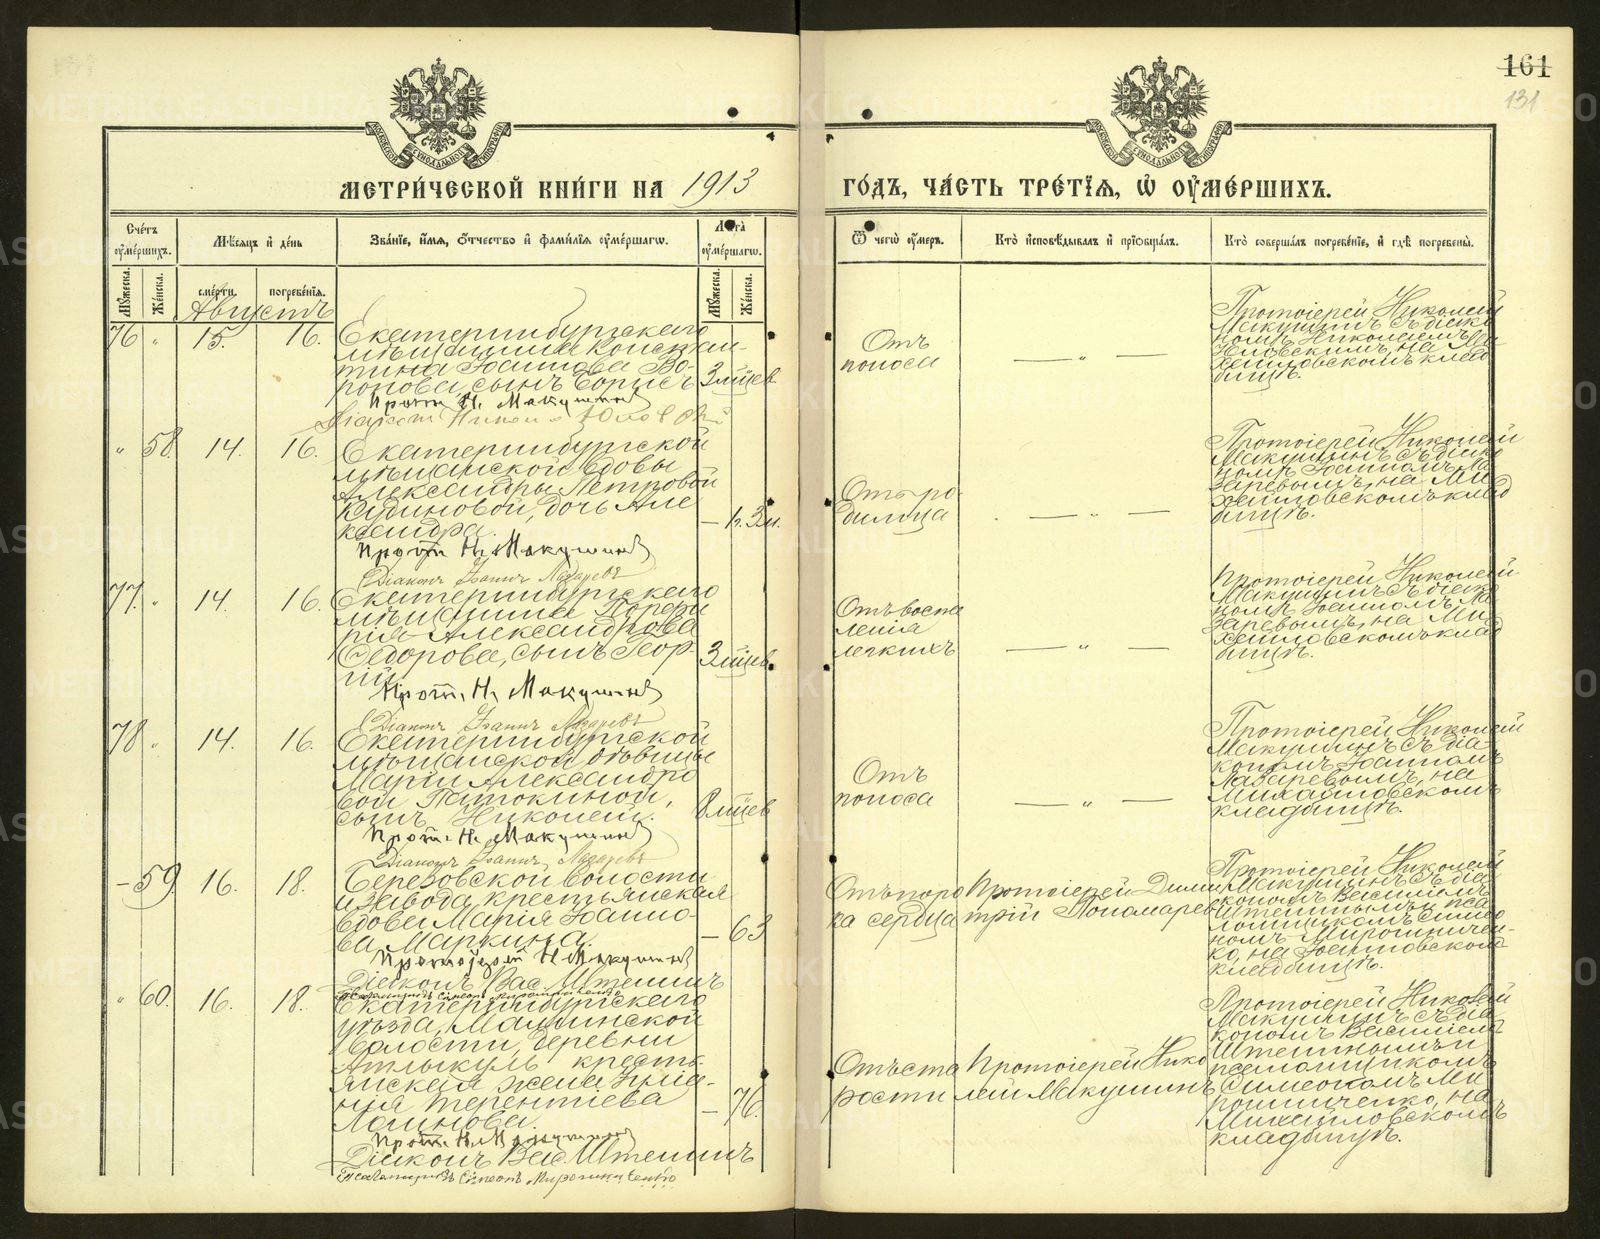 161
131
МЕТРИ́ЧЕСКОЙ КНИ́ГИ НА 1913
ГО́ДЪ, ЧА́СТЬ ТРЕ́ТЇѦ, Ѡ҆ ОУ҆МЕ́РШИХЪ.
Сче́тъ оу҆ме́ршихъ.
Мѣ́сѧцъ и҆ де́нь
Зва́нїе, и҆́мѧ, ѻ҆́тчество и҆ фами́лїѧ оу҆ме́ршагѡ.
Лѣ́та оу҆ме́ршагѡ.
Ѿ чегѡ̀ оу҆́меръ.
Кто̀ и҆сповѣ́дывалъ и҆ прїѡбща́лъ.
Кто̀ соверша́лъ погребе́нїе, и҆ гдѣ̀ погребены̀.
Мꙋ́жеска.
Же́нска.
сме́рти.
погребе́нїѧ.
Мꙋ́жеска.
Же́нска.
Августъ
76 " 15. 16.
Екатеринбургскаго
мѣщанина Констан-
тина Іоаннова Во-
ронова, сынъ Борисъ
3 мѣсев
Прот. Н. Макушинъ
Отъ
поноса
— " —
Протоіерей Николай
Макушинъ съ діако
номъ Николаемъ
на Ми
хайловскомъ клад
бищѣ.
" 58. 14. 16.
Екатеринбургской
мѣщанской вдовы
Александры Петровой
Кудиновой, дочь Але
ксандра.
Прот. Н. Макушинъ
Діаконъ Іоаннъ Лазаревъ
Отъ ро-
димца
— " —
Протоіерей Николай
Макушинъ съ діако
номъ Іоанномъ Ла
заревымъ, на Ми
хайловскомъ клад
бищѣ.
77. " 14. 16.
Екатеринбургскаго
мѣщанина Порфи
рія Александрова
Ѳедорова, сынъ Геор-
гій
3 мѣсев.
Прот. Н. Макушинъ
Діаконъ Іоаннъ Лазаревъ
Отъ воспа
ленія
легкихъ
— " —
Протоіерей Николай
Макушинъ съ діако
номъ Іоанномъ Ла
заревымъ, на Ми
хайловскомъ клад
бищѣ.
78 " 14. 16.
Екатеринбургской
мѣщанской дѣвицы
Маріи Александро
вой Патокиной,
сынъ Николай.
8 мѣсев
Прот. Н. Макушинъ
Діаконъ Іоаннъ Лазаревъ
Отъ
поноса
— " —
Протоіерей Николай
Макушинъ съ діа
кономъ Іоанномъ
Лазаревымъ, на
Михайловскомъ
кладбищѣ.
— 59 16. 18.
Березовской волости
и завода, крестьянская
вдова Марія Іоанно-
ва Маркина.
— 63
Протоіерей Н. Макушинъ
Діаконъ Вас. Штенинъ
Псаломщикъ Симеонъ Мирошниченко
Отъ поро
ка сердца
Протоіерей Дими
трій Пономаревъ
Протоіерей Николай
Макушинъ съ діа
кономъ Василіемъ
Штенинымъ и пса
ломщикомъ Симео
номъ Мирошничен-
ко, на Іоанновскомъ
кладбищѣ.
" 60. 16. 18.
Екатеринбургскаго
уѣзда, Маминской
волости, деревни
крестья
янская жена
нія Терентіева
Логинова.
— 76.
Прот. Н. Макушинъ
Діаконъ Вас. Штенинъ
Псаломщикъ Симеонъ Мирошниченко
Отъ ста
рости
Протоіерей Нико
лай Макушинъ
Протоіерей Николай
Макушинъ съ діа
кономъ Василіемъ
Штенинымъ и
псаломщикомъ
Симеономъ Ми
рошниченко, на
Михайловскомъ
кладбищѣ.